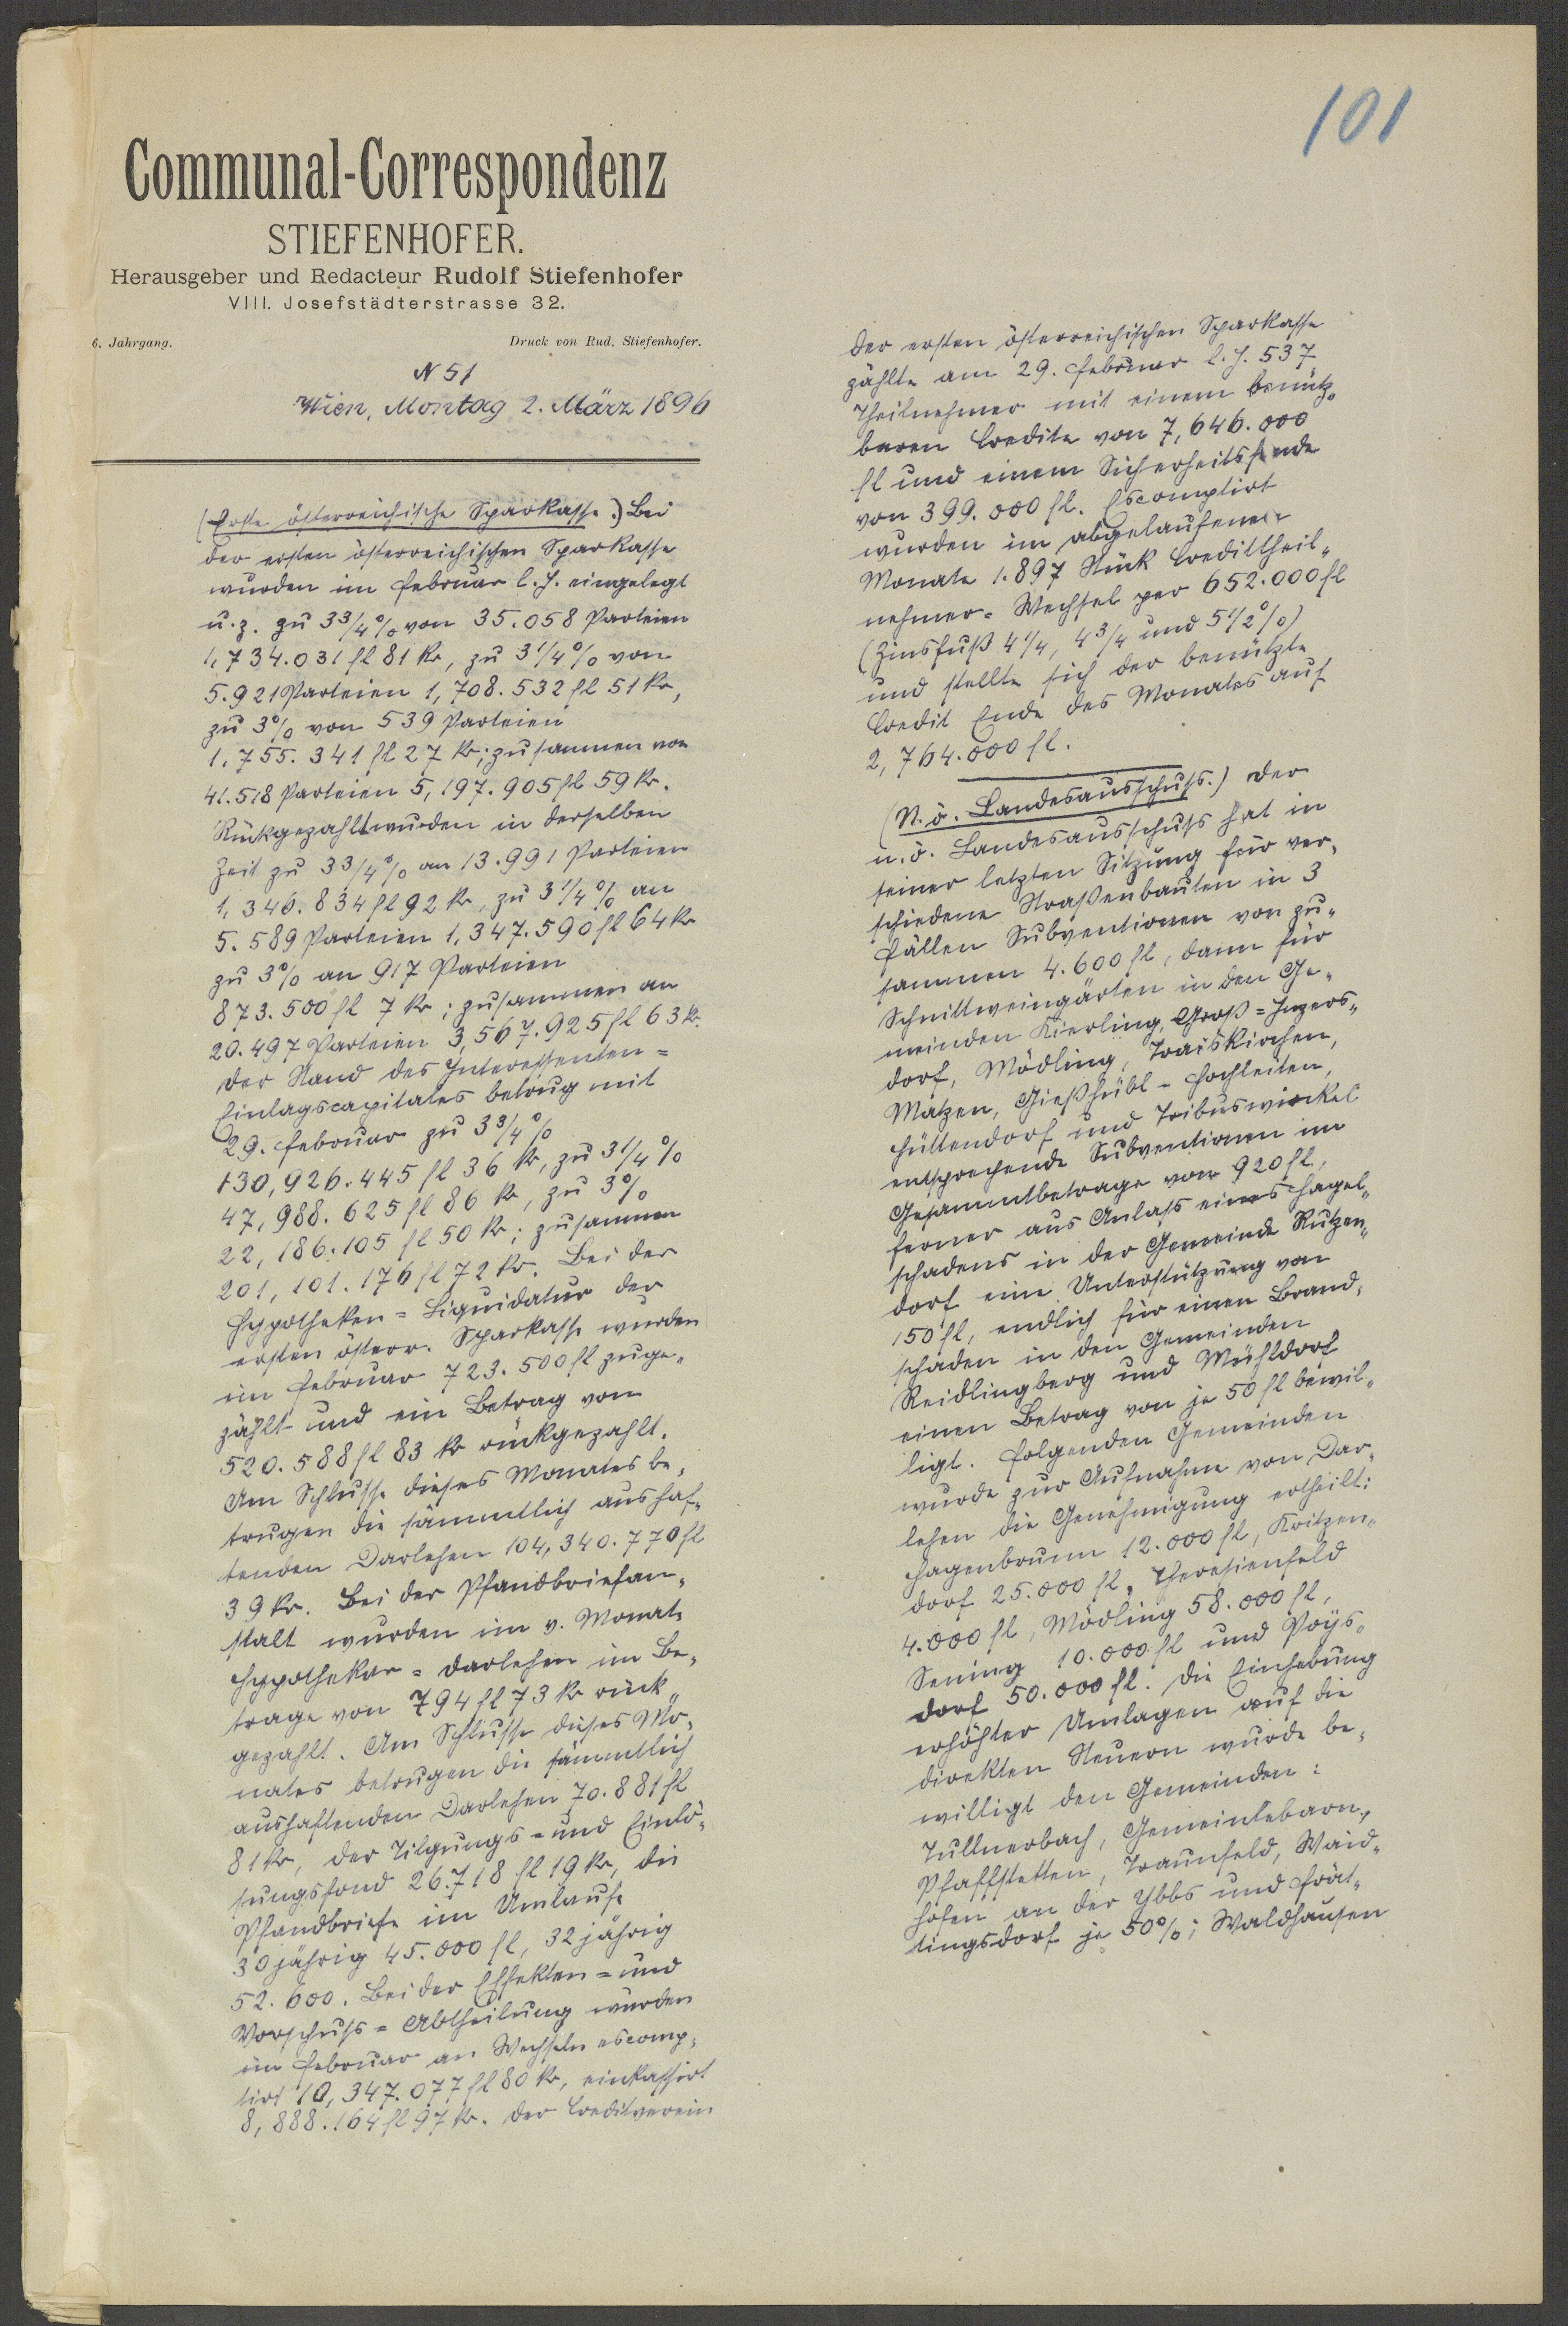 101
Communal-Correspondenz
STIEFENHOFER.
Herausgeber und Redacteur Rudolf Stiefenhofer
VIII. Josefstädterstrasse 32.
6. Jahrgang. Druck von Rud. Stiefenhofer.
N 51
Wien, Montag 2. März 1896
(Erste österreichische Sparkasse.) Bei
der ersten österreichischen Sparkasse
wurden im Februar l. J. eingelegt
u. z. zu 3 3/4 % von 35.058 Parteien
1,734.031 fl 81 kr, zu 3 1/4 % von
5.921 Parteien 1,708.532 fl 51 kr,
zu 3% von 539 Parteien
1,755.341 fl 27 kr; zusammen von
41.518 Parteien 5,197.905 fl 59 kr.
Rückgezahlt wurden in derselben
Zeit zu 3 3/4 % an 13.991 Parteien
1,346.834 fl 92 kr, zu 3 1/4 % an
5.589 Parteien 1,347.590 fl 64 kr
zu 3% an 917 Parteien
873.500 fl 7 kr; zusammen an
20.497 Parteien 3,567.925 fl 63 kr.
Der Stand des Interessenten=
Einlagscapitales betrug mit
29. Februar zu 3 3/4 %
130,926.445 fl 36 kr, zu 3 1/4 %
47,988.625 fl 86 kr, zu 3%
22,186.105 fl 50 kr; zusammen
201,101.176 fl 72 kr. Bei der
Hypotheken=Liquidatur der
ersten österr. Sparkasse wurden
im Februar 723.500 fl zuge„
zählt und ein Betrag von
520.588 fl 83 kr rückgezahlt.
Am Schlusse dieses Monates be„
trugen die sämmtlich aushaf„
tenden Darlehen 104,340.770 fl
39 kr. Bei der Pfandbriefan„
stalt wurden im v. Monate
Hypothekar=Darlehen im Be„
trage von 794 fl 73 kr rück„
gezahlt. Am Schlusse dieses Mo„
nates betrugen die sämmtlich
aushaftenden Darlehen 70.881 fl
81 kr, der Tilgungs= und Einlö„
sungsfond 26.718 fl 19 kr, die
Pfandbriefe im Umlaufe
30jährig 45.000 fl, 32jährig
52.600. Bei der Effekten= und
Vorschuss=Abtheilung wurden
im Februar an Wechseln escomp„
tirt 10,347.077 fl 80 kr, einkassirt
8,888.164 fl 97 kr. Der Creditverein
der ersten österreichischen Sparkasse
zählte am 29. Februar l. J. 537
Theilnehmer mit einem benütz„
baren Credite von 7,646.000
fl und einem Sicherheitsfonde
von 399.000 fl. Escomptirt
wurden im abgelaufenen
Monate 1.897 Stück Credittheil„
nehmer=Wechsel per 652.000 fl
(Zinsfuß 4 1/4, 4 3/4 und 5 1/2 %)
und stellte sich der benützte
Credit Ende des Monates auf
2,764.000 fl.
(N. ö. Landesausschuss.) Der
n. ö. Landesausschuss hat in
seiner letzten Sitzung für ver„
schiedene Straßenbauten in 3
Fällen Subventionen von zu„
sammen 4.600 fl, dann für
Schnittweingärten in den Ge„
meinden Kierling, Groß=Inzers„
dorf, Mödling, Traiskirchen,
Matzen, Gießhübl - Hochleiten,
Hüttendorf und Tribuswinkel
entsprechende Subventionen im
Gesammtbetrage von 920 fl,
ferner aus Anlass eines Hagel„
schadens in der Gemeinde Rutzen„
dorf eine Unterstützung von
150 fl, endlich für einen Brand„
schaden in den Gemeinden
Reidlingberg und Mühldorf
einen Betrag von je 50 fl bewil„
ligt. Folgenden Gemeinden
wurde zur Aufnahme von Dar„
lehen die Genehmigung ertheilt:
Hagenbrunn 12.000 fl, Kritzen„
dorf 25.000 fl, Theresienfeld
4.000 fl, Mödling 58.000 fl,
Sening 10.000 fl und Poys„
dorf 50.000 fl. Die Einhebung
erhöhter Umlagen auf die
direkten Steuern wurde be„
willigt den Gemeinden:
Tullnerbach, Gemeinlebarn,
Pfaffstetten, Traunfeld, Waid„
hofen an der Ybbs und Frät„
tingsdorf je 50%; Waldhausen